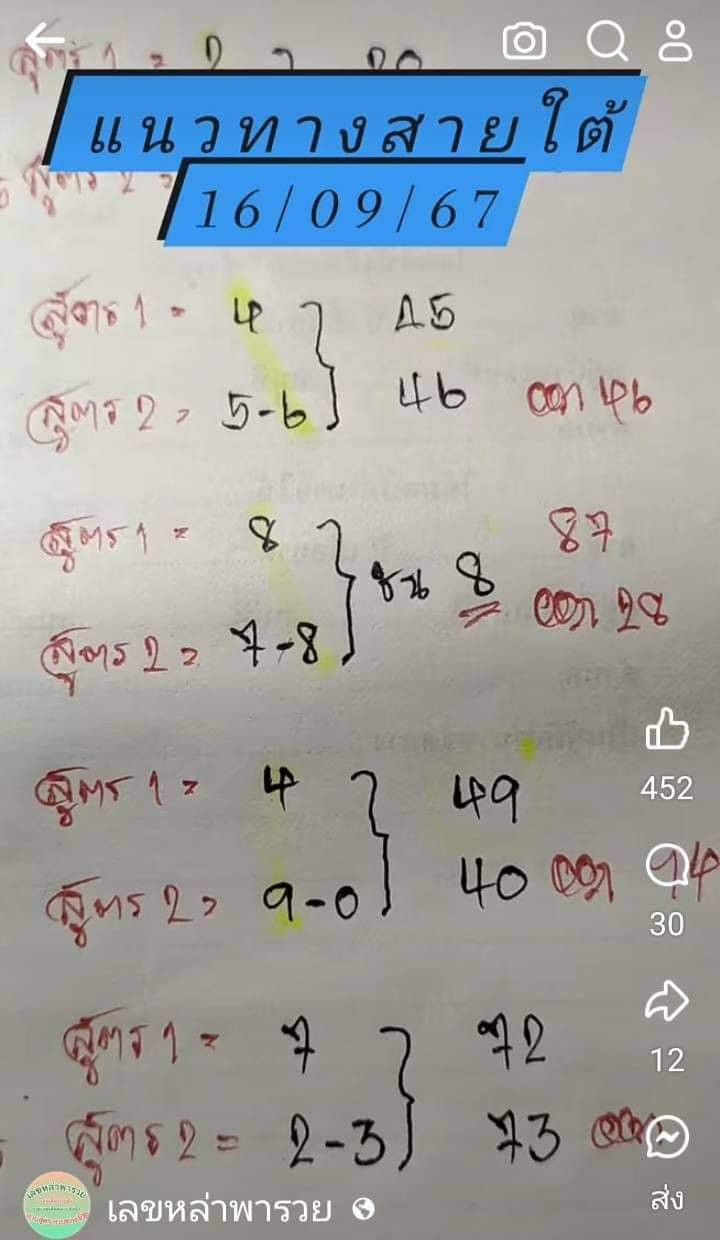 สูตร 1 = 2 20
แนวทางสายใต้
สูตร 2 =
16/09/67
สูตร 1 = 4 45
สูตร 2 = 5-6 46 ออก 46
สูตร 1 = 8 87
ชน 8
สูตร 2 = 7-8 ออก 28
สูตร 1 = 4 49
452
สูตร 2 = 9-0 40 ออก 94
30
สูตร 1 = 7 72
12
สูตร 2 = 2-3 73 ออก
ส่ง
เลขหล่าพารวย